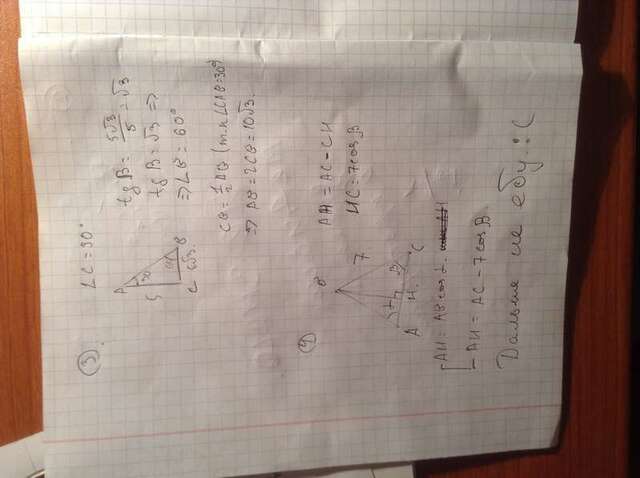 3.
∠C = 90°
A
30
5
60
B
C 5√3.
tg B = 5√3/5 = √3
tg B = √3 ⇒
⇒ ∠B = 60°
CB = ½ AB (т.к ∠CAB = 30°)
⇒ AB = 2CB = 10√3.
4
B
7
A
H
C
α
β
AH = AC - CH
HC = 7cos β
AH = AB cos α.
AH = AC - 7cos β
Дальше не ебу. :(